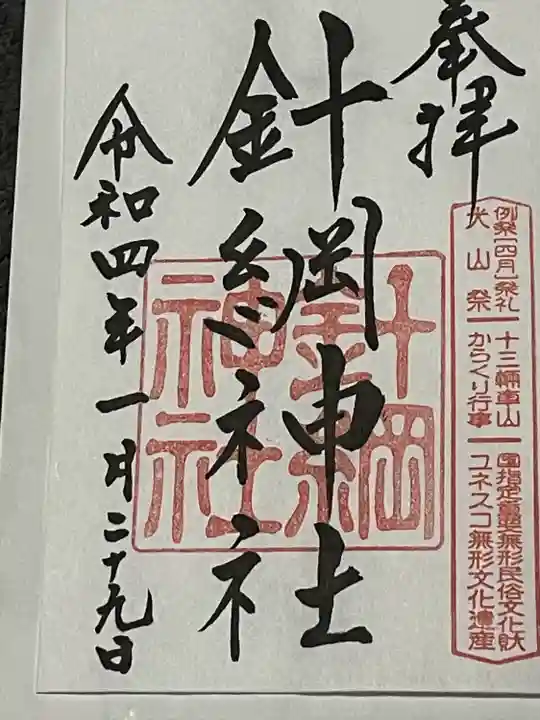 奉拝
例祭[四月]祭礼
犬山祭
十三輛車山
からくり行事
国指定重要無形民俗文化財
ユネスコ無形文化遺産
針綱神社
針綱神社
令和四年一月二十九日